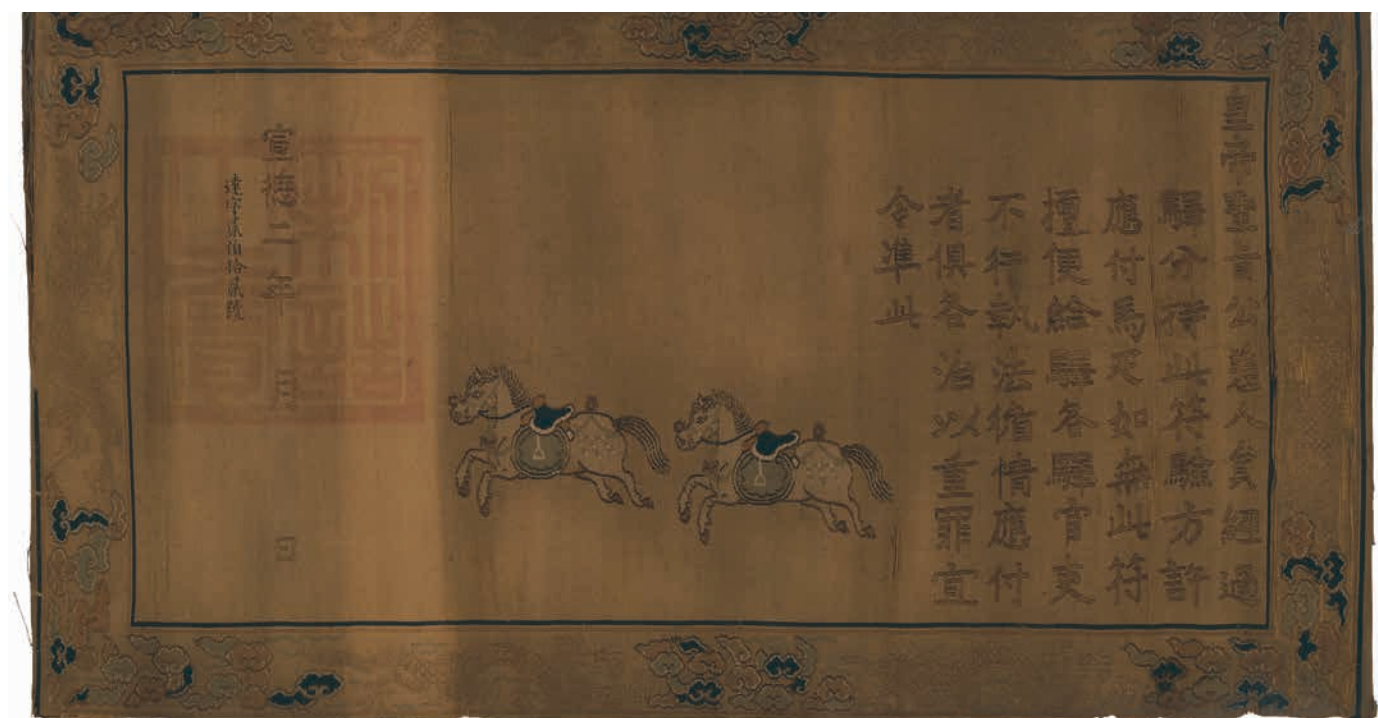 皇帝聖旨公差人員經過
驛分持此符驗方許
應付馬疋如無此符
擅便給驛各驛官吏
不行執法循情應付
者俱各治以重罪宜
令準此
宣德二年 月 日
達字貳伯拾貳號